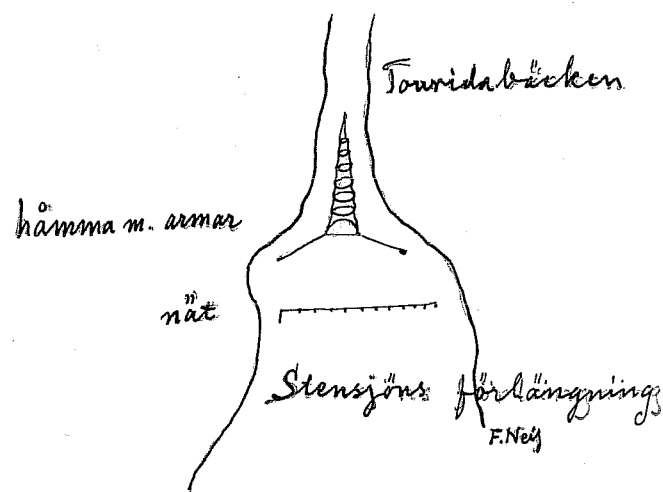 Touridabäcken
håmma m. armar
nät
Stensjöns förlängning
F. Neij